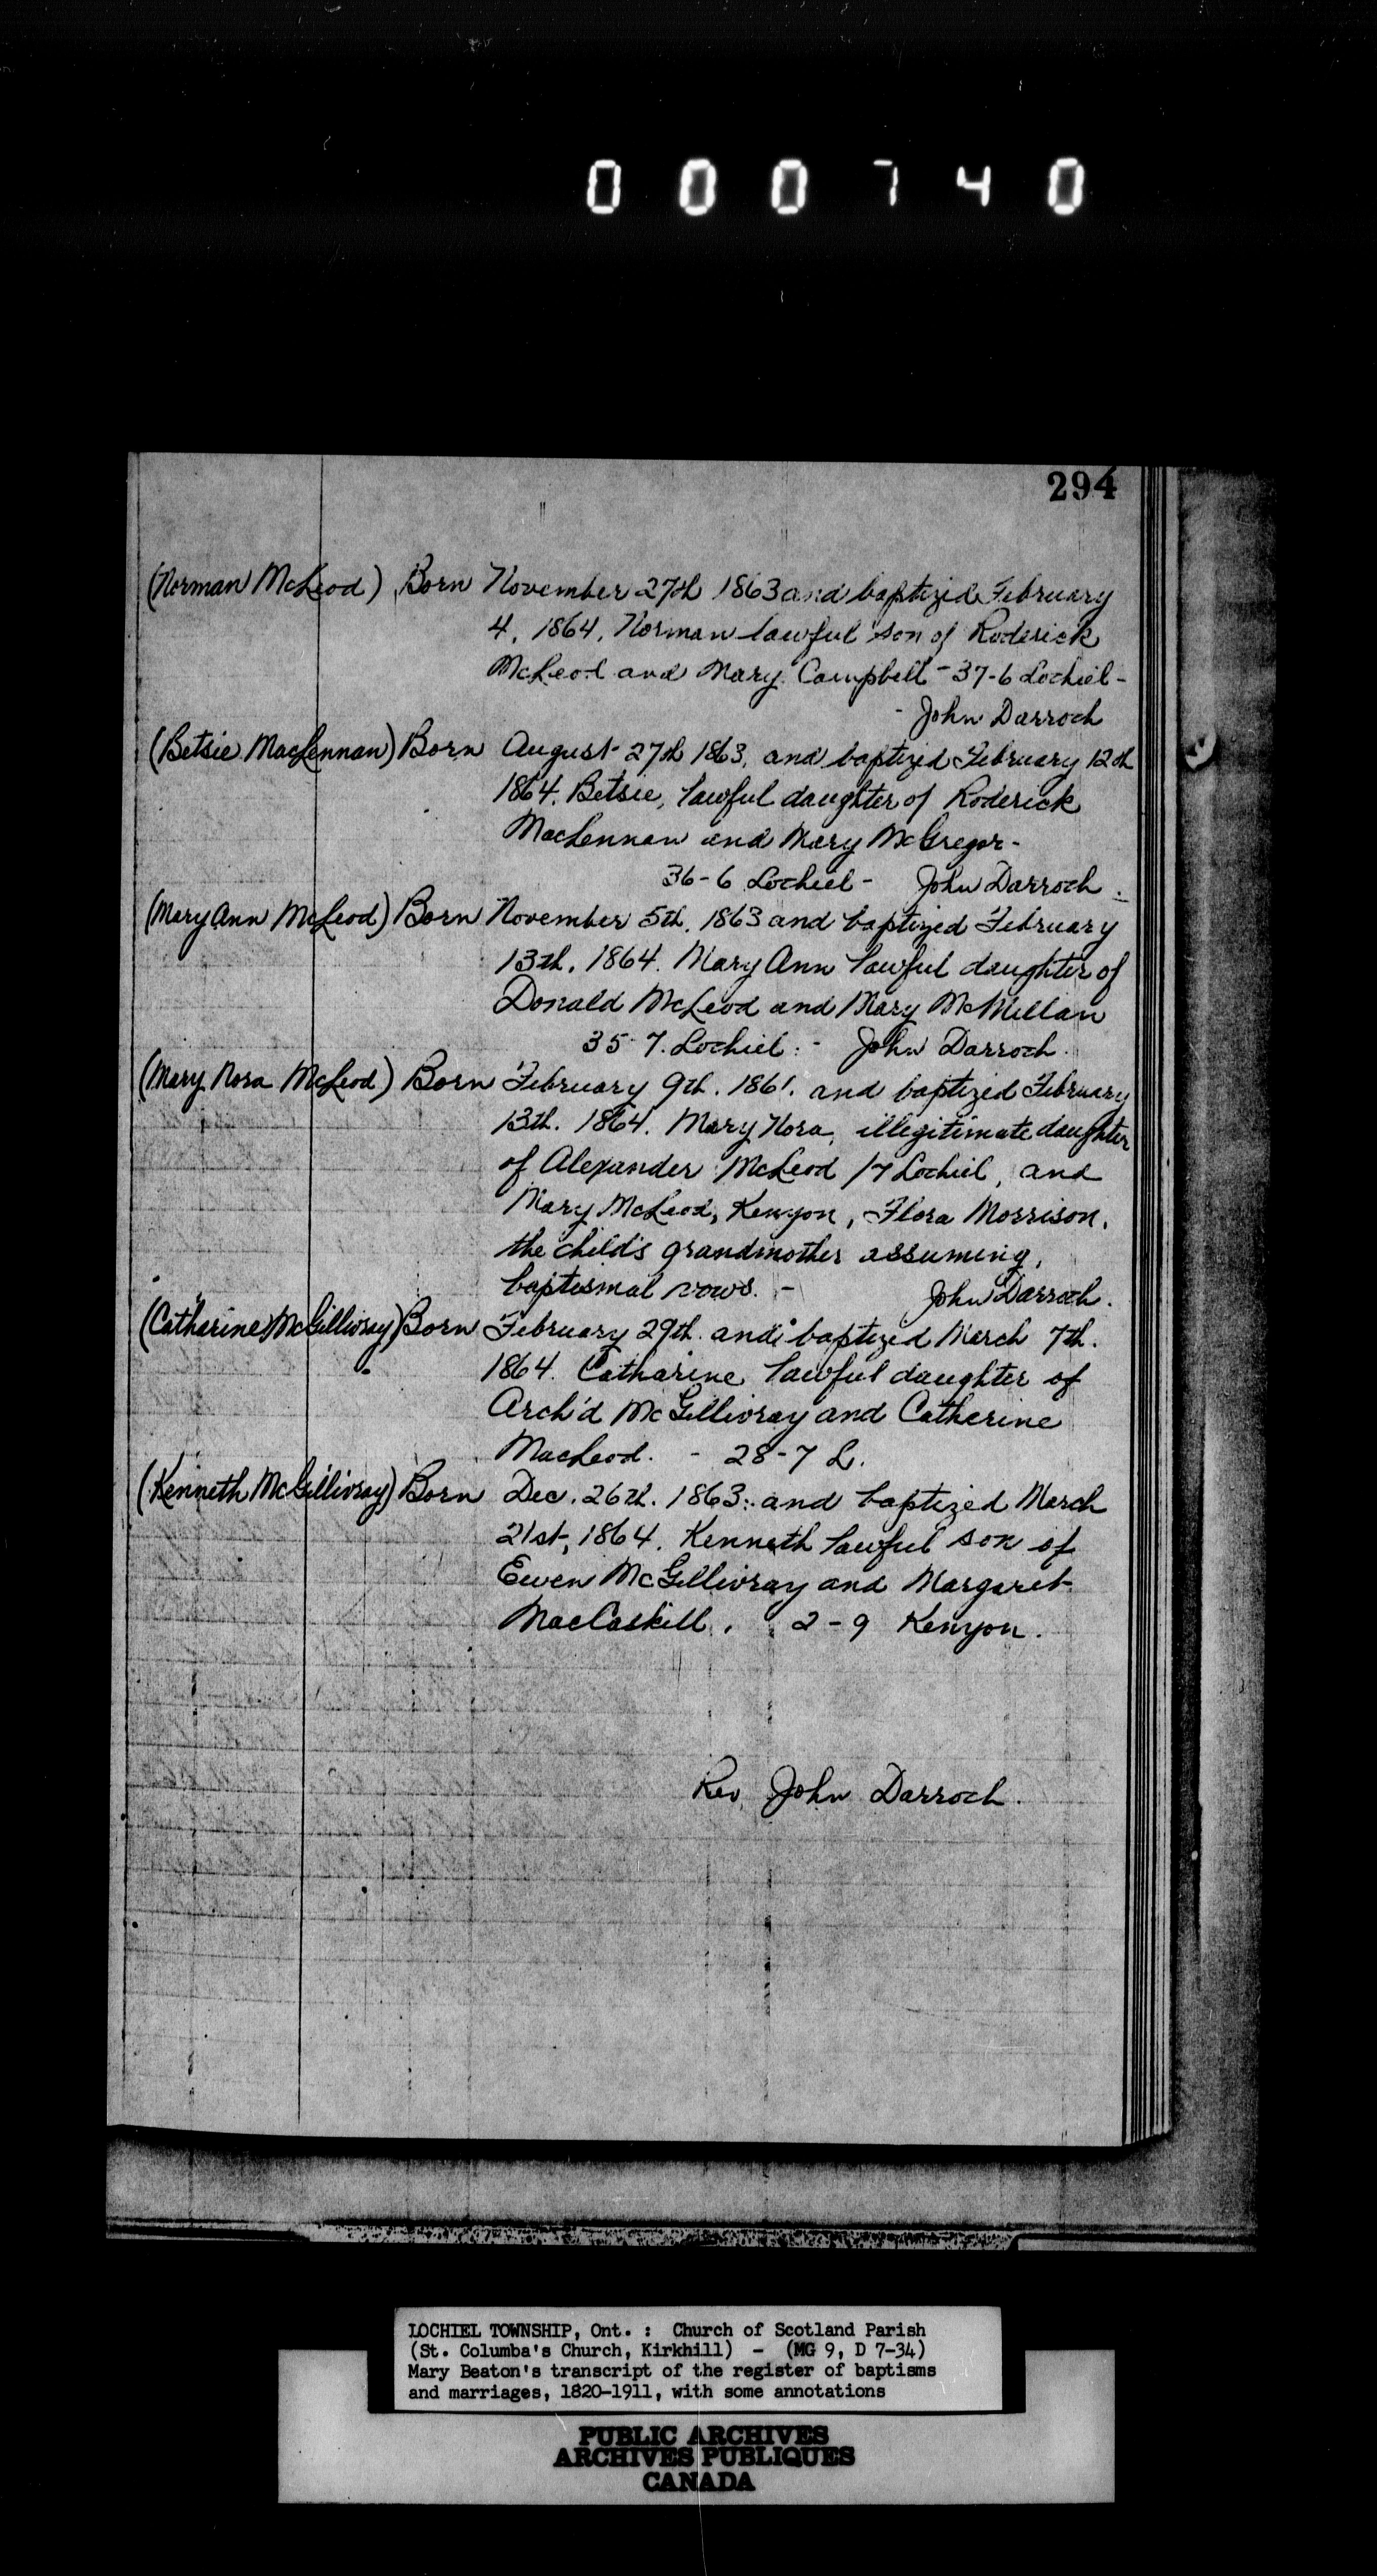 000740
294
(Norman McLeod) Born November 27th 1863 and baptized February
4, 1864, Norman lawful son of Roderick
McLeod and Mary Campbell - 37-6 Lochiel -
- John Darroch
(Betsie MacLennan) Born August 27th 1863, and baptized February 12th
1864. Betsie, lawful daughter of Roderick
MacLennan and Mary McGregor -
36-6 Lochiel - John Darroch.
(Mary Ann McLeod) Born November 5th, 1863 and baptized February
13th, 1864. Mary Ann lawful daughter of
Donald McLeod and Mary McMillan
35-7. Lochiel. - John Darroch.
(Mary Nora McLeod) Born February 9th. 1861. and baptized February
13th. 1864. Mary Nora, illegitimate daughter
of Alexander McLeod 17 Lochiel, and
Mary McLeod, Kenyon, Flora Morrison,
the child's grandmother assuming,
baptismal vows. - John Darroch.
(Catharine McGillivray) Born February 29th. and baptized March 7th.
1864. Catharine lawful daughter of
Arch'd McGillivray and Catherine
MacLeod. - 28-7 L.
(Kenneth McGillivray) Born Dec. 26th. 1863: and baptized March
21st, 1864. Kenneth lawful son of
Ewen McGillivray and Margaret
MacCaskill. 2-9 Kenyon.
Rev. John Darroch.
LOCHIEL TOWNSHIP, Ont. : Church of Scotland Parish
(St. Columba's Church, Kirkhill) - (MG 9, D 7-34)
Mary Beaton's transcript of the register of baptisms
and marriages, 1820-1911, with some annotations
PUBLIC ARCHIVES
ARCHIVES PUBLIQUES
CANADA